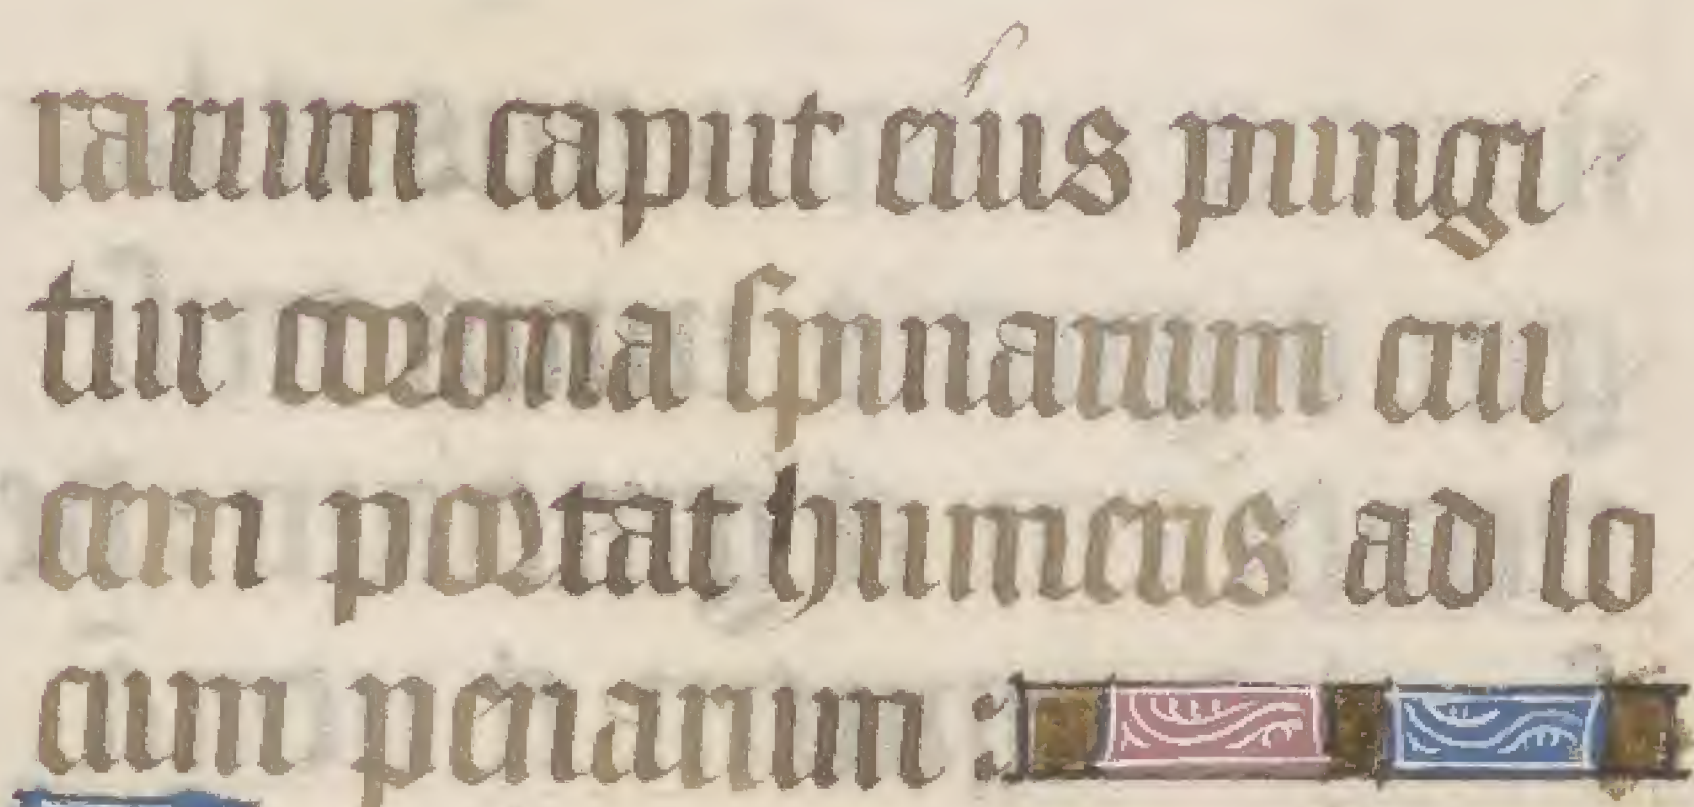 rarum caput eius pungi
tur corona spinarum cru
cem portat humeris ad lo
cum penarum :